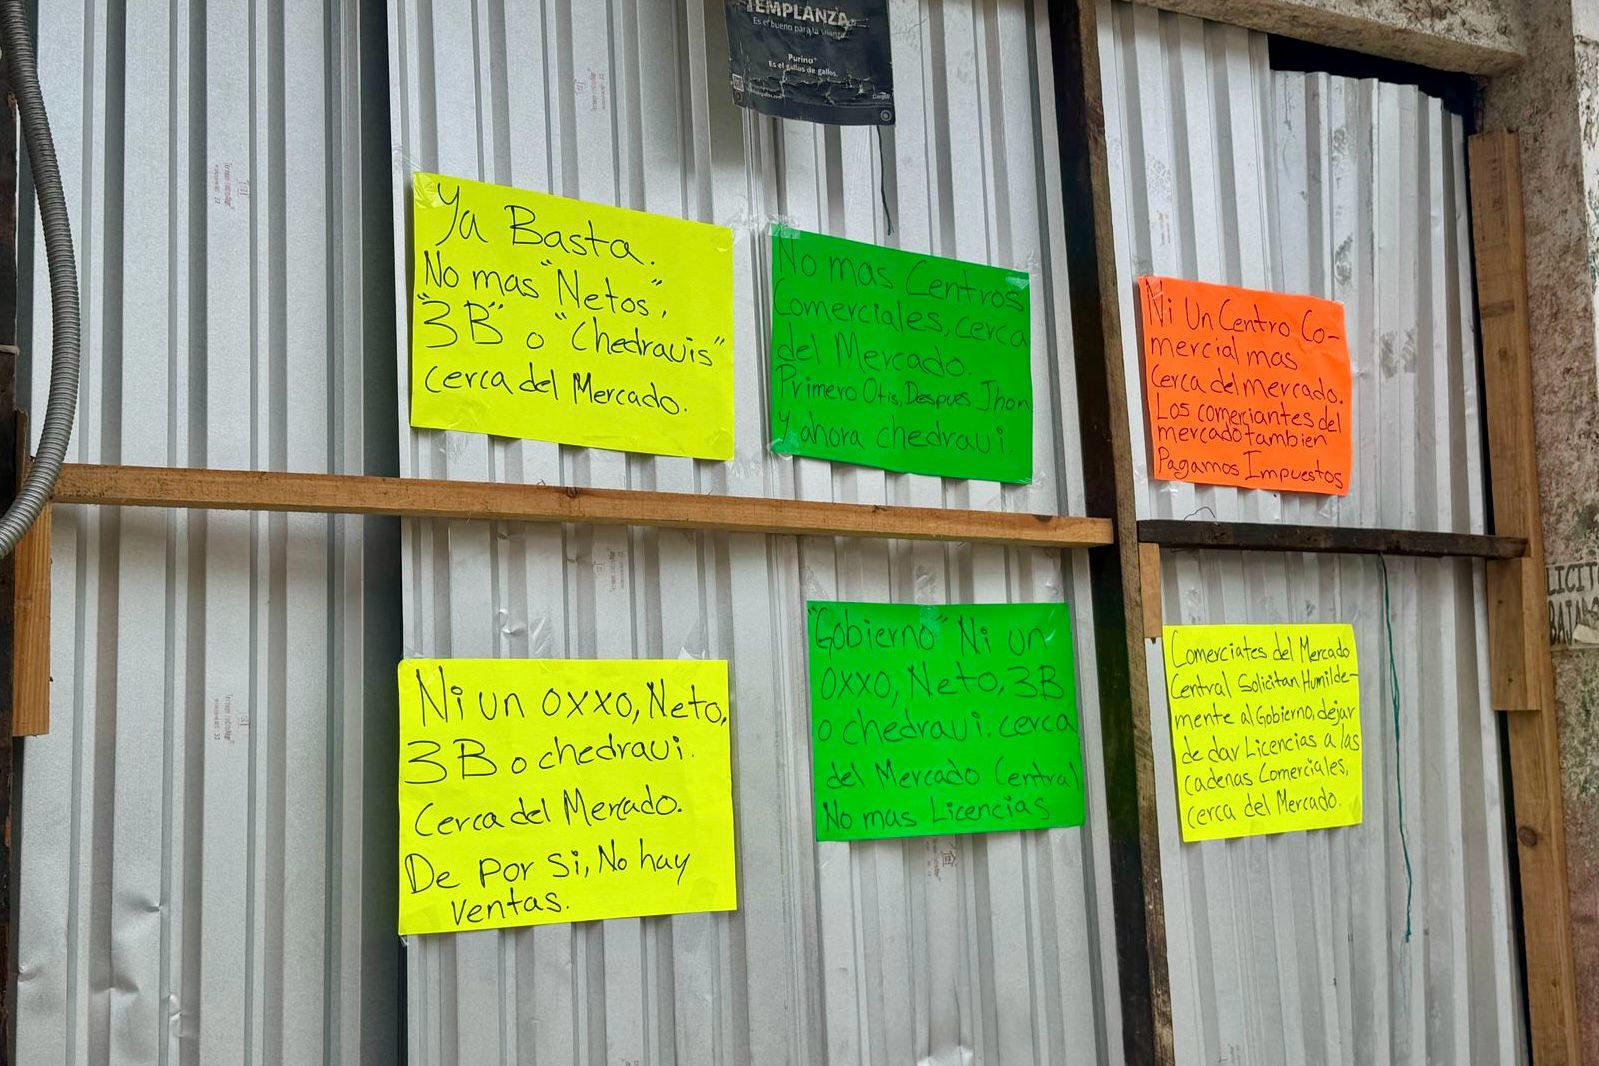 TEMPLANZA
Es el bueno para la
Purina
Es el gallos de gallos.
Ya Basta.
No mas "Netos",
"3B" o "Chedrauis"
cerca del Mercado.
No mas Centros
Comerciales, cerca
del Mercado.
Primero Otis, Despues Jhon
Y ahora chedraui.
Ni Un Centro Co-
mercial mas
Cerca del mercado.
Los comerciantes del
mercado tambien
Pagamos Impuestos
Ni un OXXO, Neto,
3B o chedraui.
Cerca del Mercado.
De Por Si, No hay
Ventas.
"Gobierno" Ni un
OXXO, Neto, 3B
o chedraui. cerca
del Mercado Central
No mas Licencias
Comerciates del Mercado
Central Solicitan Humilde-
mente al Gobierno, dejar
de dar Licencias a las
cadenas Comerciales,
cerca del Mercado.